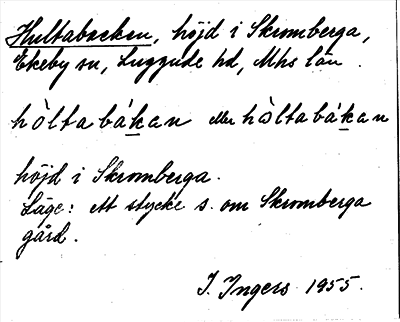 Hultabacken, höjd i Skromberga,
Ekeby sn, Luggude hd, Mhs län.
hòltabákan eller hòltabákan
höjd i Skromberga.
Läge: ett stycke s. om Skromberga
gård.
I. Ingers 1955.